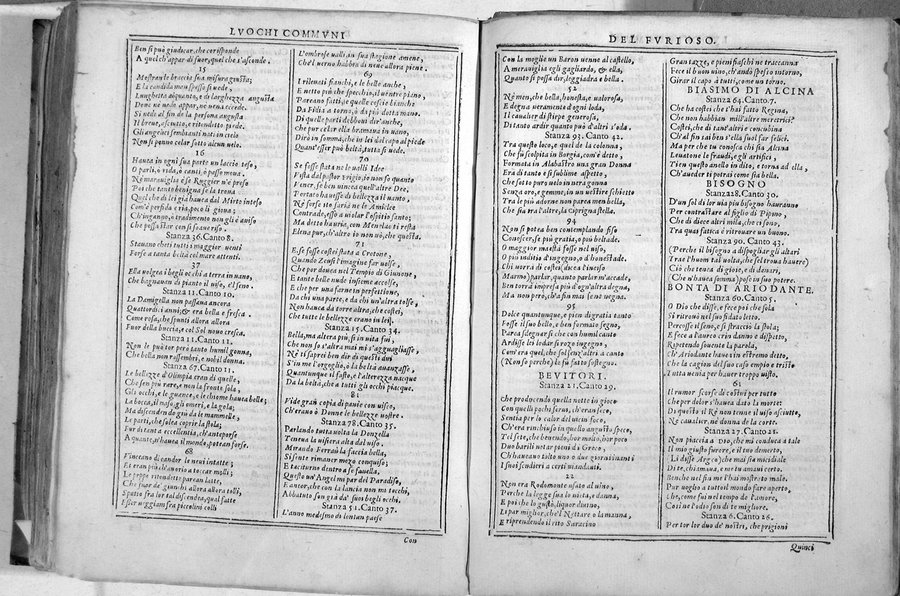 LVOCHI COMMVNI
Ben si può giudicar, che corrisponde
A quel ch'appar di fuor, quel che s'asconde.
15
Mostran le braccia sua misura giusta;
E la candida man spesso si vede
Lunghetta alquanto, e di larghezza angusta
Doue nè nodo appar, nè vena eccede.
Si vede al fin de la persona augusta
Il breue, asciutto, e ritondetto piede.
Gli angelici sembianti nati in cielo
Non si ponno celar sotto alcun velo.
16
Hauea in ogni sua parte un laccio teso,
O parli, ò rida, ò canti, ò passo moua.
Nè marauiglia è se Ruggier n'è preso
Poi che tanto benigna se la troua
Quel che di lei già hauea dal Mirto inteso
Com'è perfida e ria, poco li gioua;
Ch'inganno, ò tradimento non gli è auiso
Che possa star con si soaue riso.
Stanza 36. Canto 8.
Stauano cheti tutti i maggior venti
Forse a tanta beltà col mare attenti.
37
Ella volgea i begli occhi a terra in uano,
Che bagnauen di pianto il uiso, e'l seno.
Stanza 11. Canto 10.
La Damigella non passaua ancora
Quattordici anni, & era bella e fresca.
Come rosa, che spunti allora allora
Fuor della buccia, e col Sol nouo cresca.
Stanza 11. Canto 11.
Non le può tor però tanto humil gonna,
Che bella non rassembri, e nobil donna.
Stanza 67. Canto 11.
Le bellezze d'Olimpia eran di quelle,
Che son più rare, e non la fronte sola
Gli occhi, e le guance, e le chiome hauea belle;
La bocca, il naso, gli omeri, e la gola;
Ma discendendo giù da le mammelle,
Le parti, che solea coprir la stola;
Fur di tanta eccellentia, ch'anteporse
A quante n'hauea il mondo, potean forse.
68
Vinceano di candor le neui intatte;
Et eran più, ch'auorio a toccar molli:
Le poppe ritondette parean latte,
Che fuor de giunchi allora allora tolli,
Spatio fra lor tal discendea, qual fatte
Esser ueggiam fra piccolini colli
L'ombrose ualli, in sua stagione amene,
Che'l uerno habbia di neue allora piene.
69
I rileuati fianchi, e le belle anche,
E netto più che specchio, il uentre piano,
Pareano fatti, e quelle coscie bianche
Da Fidia a torno, ò da più dotta mano.
Di quelle parti debboui dir'anche,
Che pur celar ella bramaua in uano,
Dirò in somma, che in lei dal capo al piede
Quant'esser può beltà, tutta si uede.
70
Se fosse stata ne le ualli Idee
Vista dal pastor Frigio, io non so quanto
Vener, se ben uincea quell'altre Dee,
Portato hauesse di bellezza il uanto,
Nè forse ito saria ne le Amiclee
Contrade, esso a uiolar l'ospitio santo;
Ma detto hauria, con Menelao ti resta
Elena pur, ch'altro io non uò, che questa.
71
E se fosse costei stata a Crotone,
Quando Zeusi l'imagine far uolse,
Che por douea nel Tempio di Giunone,
E tante belle nude insieme accolse,
E che per una farne in perfettione,
Da chi una parte, e da chi un'altra tolse,
Non hauea da torre altra, che costei,
Che tutte le bellezze erano in lei.
Stanza 15. Canto 34.
Bella, ma altera più, si in vita fui,
Che non so s'altra mai mi s'agguagliasse,
Nè ti saprei ben dir de questi dui
S'in me l'orgoglio, ò la beltà auanzasse,
Quantunque il fasto, e l'alterezza nacque
Da la beltà, che a tutti gli occhi piacque.
81
Vide gran copia di pauie con uisco,
Ch'erano ò Donne le bellezze uostre.
Stanza 78. Canto 35.
Parlando tuttauolta la Donzella
Teneua la uisiera alta dal uiso.
Mirando Ferraù la faccia bella,
Si sente rimaner mezo conquiso;
E taciturno dentro a se fauella,
Questo un'Angel mi par del Paradiso,
E ancor, che con la lancia non mi tocchi,
Abbatuto son già da' suoi begli occhi.
Stanza 51. Canto 37.
L'anno medesmo di lontan paese
Con
DEL FVRIOSO.
Con la moglie un Baron uenne al castello,
A merauiglia egli gagliardo, & ella,
Quanto si possa dir, leggiadra e bella.
52
Nè men, che bella, honesta, e ualorosa,
E degna ueramente d'ogni loda,
Il caualier di stirpe generosa,
Di tanto ardir quanto può d'altri s'oda.
Stanza 93. Canto 42.
Tra questo loco, e quel de la colonna,
Che fu scolpita in Borgia, com'è detto,
Formata in Alabastro una gran Donna
Era di tanto e si sublime aspetto,
Che sotto puro uelo in nera gonna
Senza oro, e gemme, in un uestire schietto
Tra le più adorne non parea men bella,
Che sia tra l'altre, la Ciprigna stella.
94
Non si potea ben contemplando fiso
Conoscer, se più gratia, e più beltade.
O maggior maestà fosse nel uiso,
O più inditio d'ingegno, o d'honestade.
Chi uorrà di costei, dicea l'inciso
Marmo) parlar, quanto parlar m'accade,
Ben torrà impresa più d'ogn'altra degna,
Ma non però, ch'a fin mai se ne uegna.
95
Dolce quantunque, e pien digratia tanto
Fosse il suo bello, e ben formato segno,
Parea sdegnarsi che con humil canto
Ardisse lei lodar si rozo ingegno,
Com'era quel, che sol senz'altri a canto
(Non so perche) le fù fatto sostegno.
BEVITORI.
Stanza 21. Canto 29.
che producendo quella notte in gioco
Con quelli pochi serui, ch'eran seco,
Sentia per lo calor del uicin foco,
Ch'era rinchiuso in quello angusto speco,
Tal sete, che beuendo, hor molto, hor poco
Duo barili uotar pieni di Greco,
Ch'haueano tolto uno o due giorni innanti
I suoi scudieri a certi uiandanti.
22
Non era Rodomonte usato al uino,
Perche la legge sua lo uieta, e danna,
E poi che lo gustò, liquor diuino,
Li par miglior, che'l Nettare o la manna,
E riprendendo il rito Saracino
Gran tazze, e pieni fiaschi ne traccanna
Fece il buon vino, ch'andò spesso intorno,
Girar il capo a tutti, come un torno.
BIASIMO DI ALCINA
Stanza 64. Canto 7.
Che ha costei che t'hai fatto Regina,
Che non habbian mill'altre meretrici?
Costei, che di tant'altri è concubina
Ch'al fin sai ben s'ella suol far felici.
Ma per che tu conosca chi sia Alcina
Leuatone le fraudi, e gli artifici,
Tien questo anello in dito, e torna ad ella,
Ch'aueder ti potrai come sia bella.
BISOGNO
Stanza 28. Canto 30.
D'un sol di lor uia più bisogno hauranno
Per contrastare al figlio di Pipino,
Che di diece altri mila, che ci sono,
Tra quai fatica è ritrouare un buono.
Stanza 90. Canto 43.
(Perche il bisogno a dispogliar gli altari
Trae l'huom tal uolta, che sel troua hauere)
Ciò che tenea di gioie, e di danari,
Che n'hauea somma) pose in suo potere.
BONTA DI ARIODANTE.
Stanza 60. Canto 5.
O Dio che disse, e fece poi che sola
Si ritrouò nel suo fidato letto.
Percosse il seno, e si stracciò la stola;
E fece a l'aureo crin danno e dispetto,
Repetendo souente la parola,
Ch'Ariodante hauea in estremo detto,
Che la cagion del suo caso empio e tristo
Tutta uenia per hauer troppo uisto.
61
Il rumor scorse di costui per tutto
Che per dolor s'hauea dato la morte:
Di questo il Rè non tenne il uiso asciutto,
Nè caualier, nè donna de la corte.
Stanza 27. Canto 21.
Non piaccia a Dio, che mi conduca a tale
Il mio giusto furore, e il tuo demerto,
(Li disse Argeo) che mai sia micidiale
Di te, chiamaua, e non tu amaui certo.
Benche nel fin me l'hai mostrato male.
Pur uoglio a tutto il mondo fare aperto,
Che, come fui nel tempo de l'amore,
Così ne l'odio son di te migliore.
Stanza 6. Canto 26.
Per tor lor duo de' nostri, che prigioni
Quinci